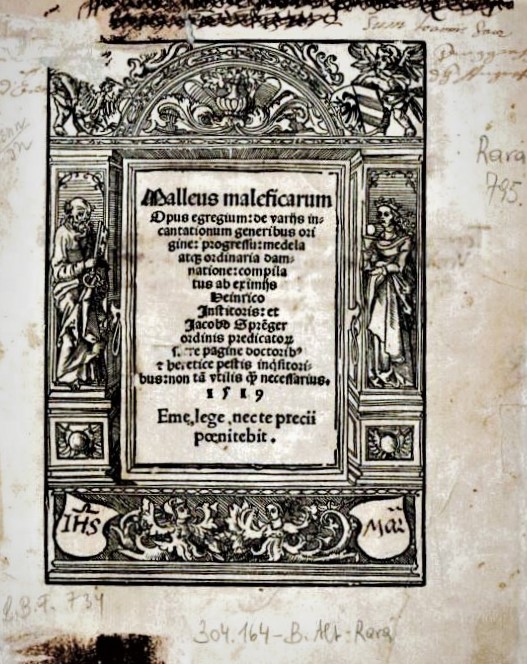 Sum
Rara
795.
Malleus maleficarum
Opus egregium: de varijs in⸗
cantationum generibus ori
gine: progressu: medela
atq̃ ordinaria dam⸗
natione: compila
tus ab eximijs
Heinrico
Institoris: et
Jacobo Sprẽger
ordinis predicatoꝝ
pagine doctoribꝰ
⁊ heretice pestis inq̃sitori⸗
bus: non tã vtilis q̃ꝫ necessarius.
1519
Emę, lege, nec te precii
pœnitebit.
IHS
Mar̃
B.B.F. 734
304.164-B. Alt-Rara